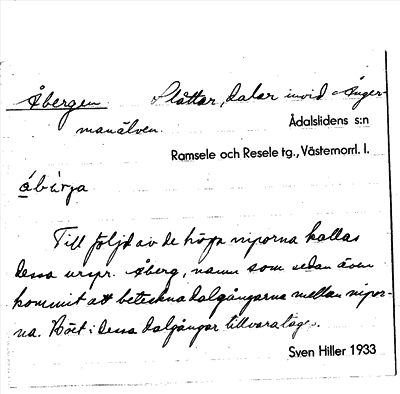 Åbergen Slåttar, dalar invid Ånger-
manälven.
Ådalslidens s:n
Ramsele och Resele tg., Västernorrl. l.
åbärja
Till följd av de höga niporna kallas
dessa urspr. åberg, namn som sedan även
kommit att beteckna dalgångarna mellan nipor-
na. Höet i dessa dalgångar tillvaratages.
Sven Hiller 1933